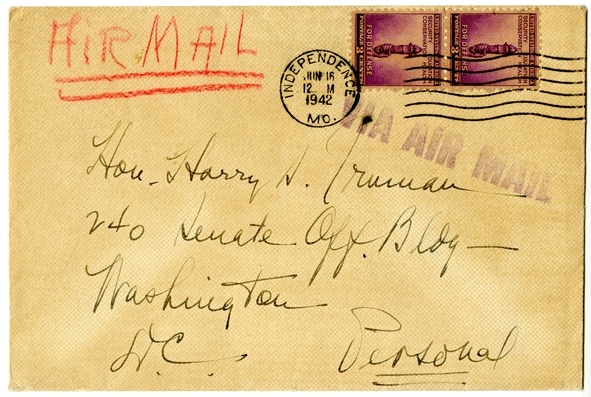 AIR MAIL
INDEPENDENCE
JUN 16
12 M
1942
MO.
FOR DEFENSE
FOR DEFENSE
VIA AIR MAIL
Hon. Harry S. Truman
240 Senate Off. Bldg—
Washington
D.C. Personal